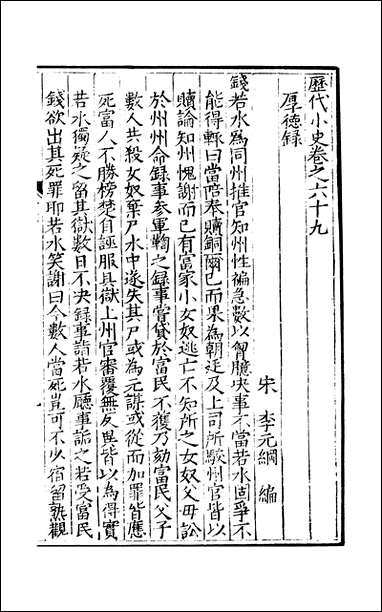 歷代小史卷之六十九
厚德錄
宋 李元綱 編
錢若水為同州推官知州性褊急數以胷臆決事不當若水固爭不
能得輒曰當陪奉贖銅爾已而果為朝廷及上司所駁州官皆以
贖論知州愧謝而已有富家小女奴逃亡不知所之女奴父母訟
於州州命錄事參軍鞫之錄事嘗貸於富民不獲乃劾富民父子
數人共殺女奴棄尸水中遂失其尸或為元謀或從而加罪皆應
死富人不勝榜楚自誣服具獄上州官審覆無反異皆以為得實
若水獨疑之留其獄數日不決錄事詣若水廳事詬之若受富民
錢欲出其死罪耶若水笑謝曰今數人當死豈可不少宿留熟觀